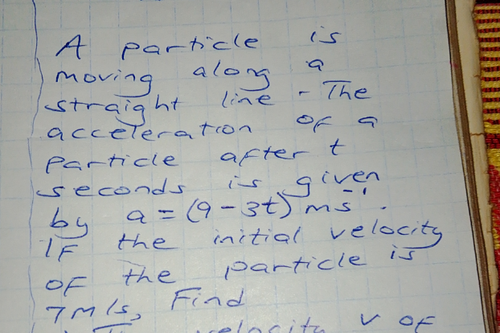 A particle is
moving along a
straight line - The
acceleration of a
particle after t
seconds is given
by a = (9 - 3t) ms⁻¹.
IF the initial velocity
OF the particle is
7m/s, Find
velocity v OF